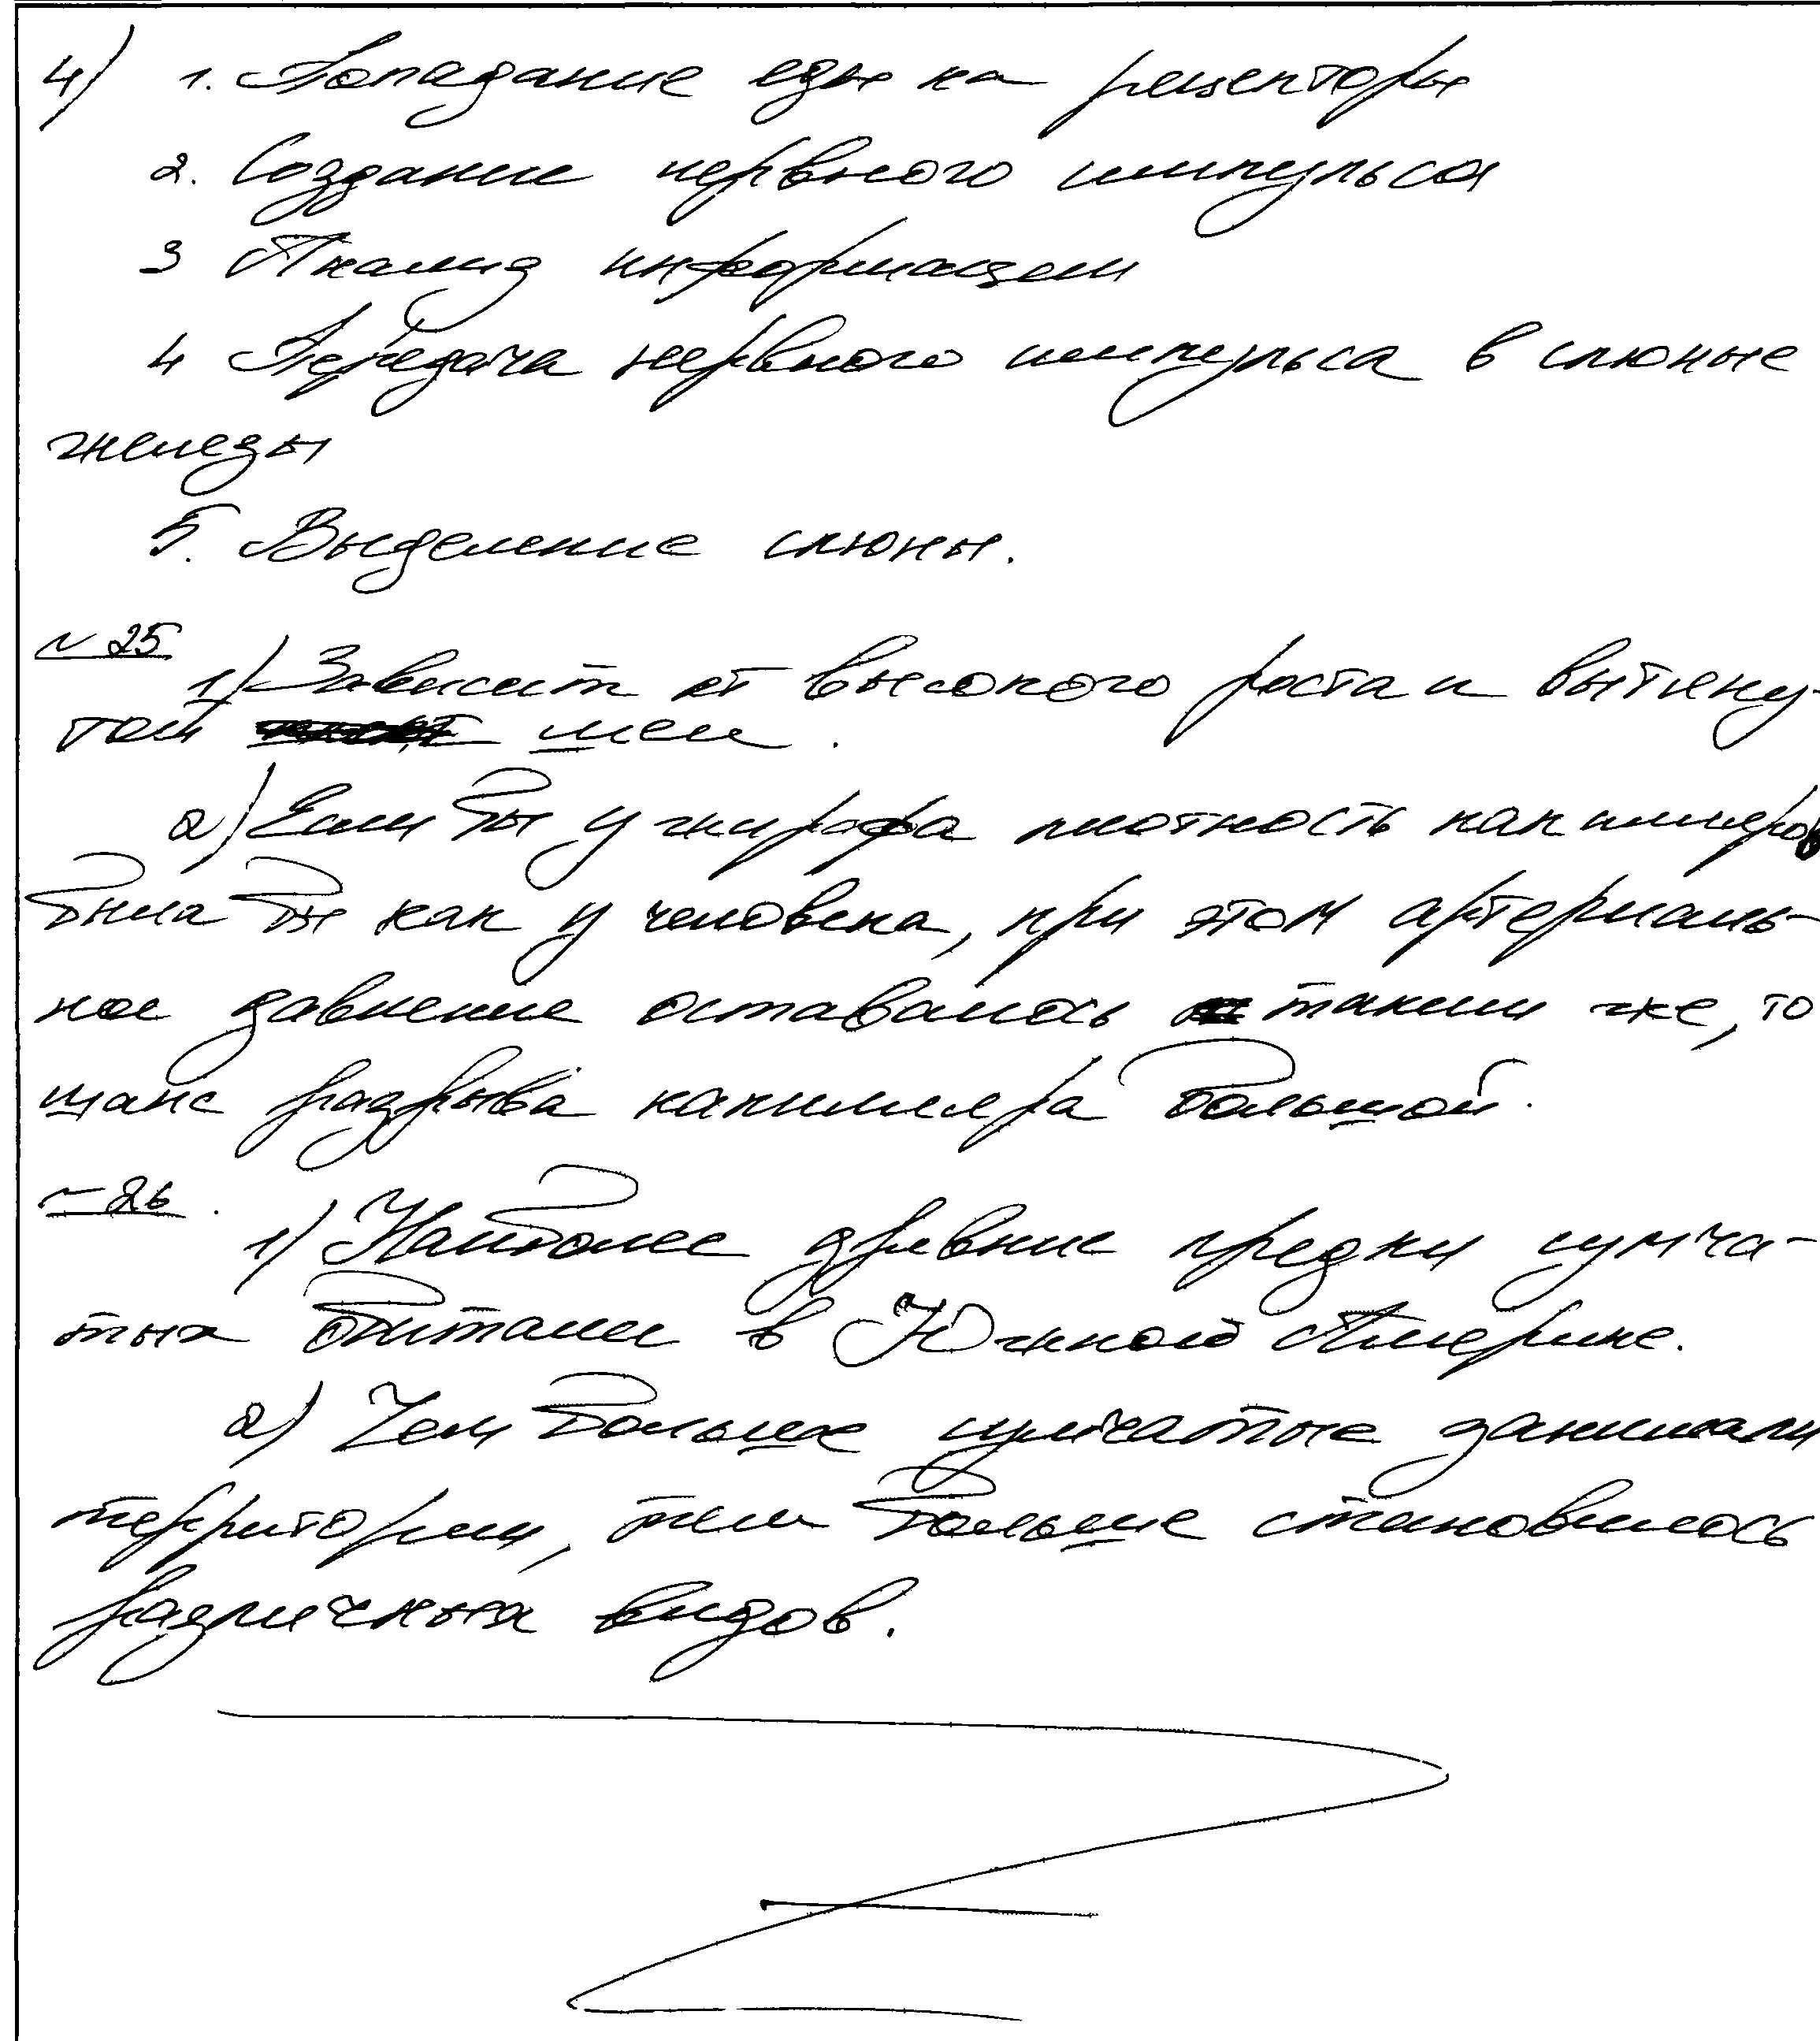 4) 1. Попадание еды на рецепторы
2. Создание нервного импульса
3 Анализ информации
4 Передача нервного импульса в слюные
железы
5. Выделение слюны.
№ 25
1) Зависит от высокого роста и вытяну-
той шеи.
2) Если бы у жирафа плотность капилляров
была бы как у человека, при этом артериаль-
ное давление оставалось таким же, то
шанс разрыва капилляра большой.
№ 26.
1) Наиболее древние предки сумча-
тых обитали в Южной Америке.
2) Чем больше сумчатые занимали
территории, тем больше становилось
различных видов.